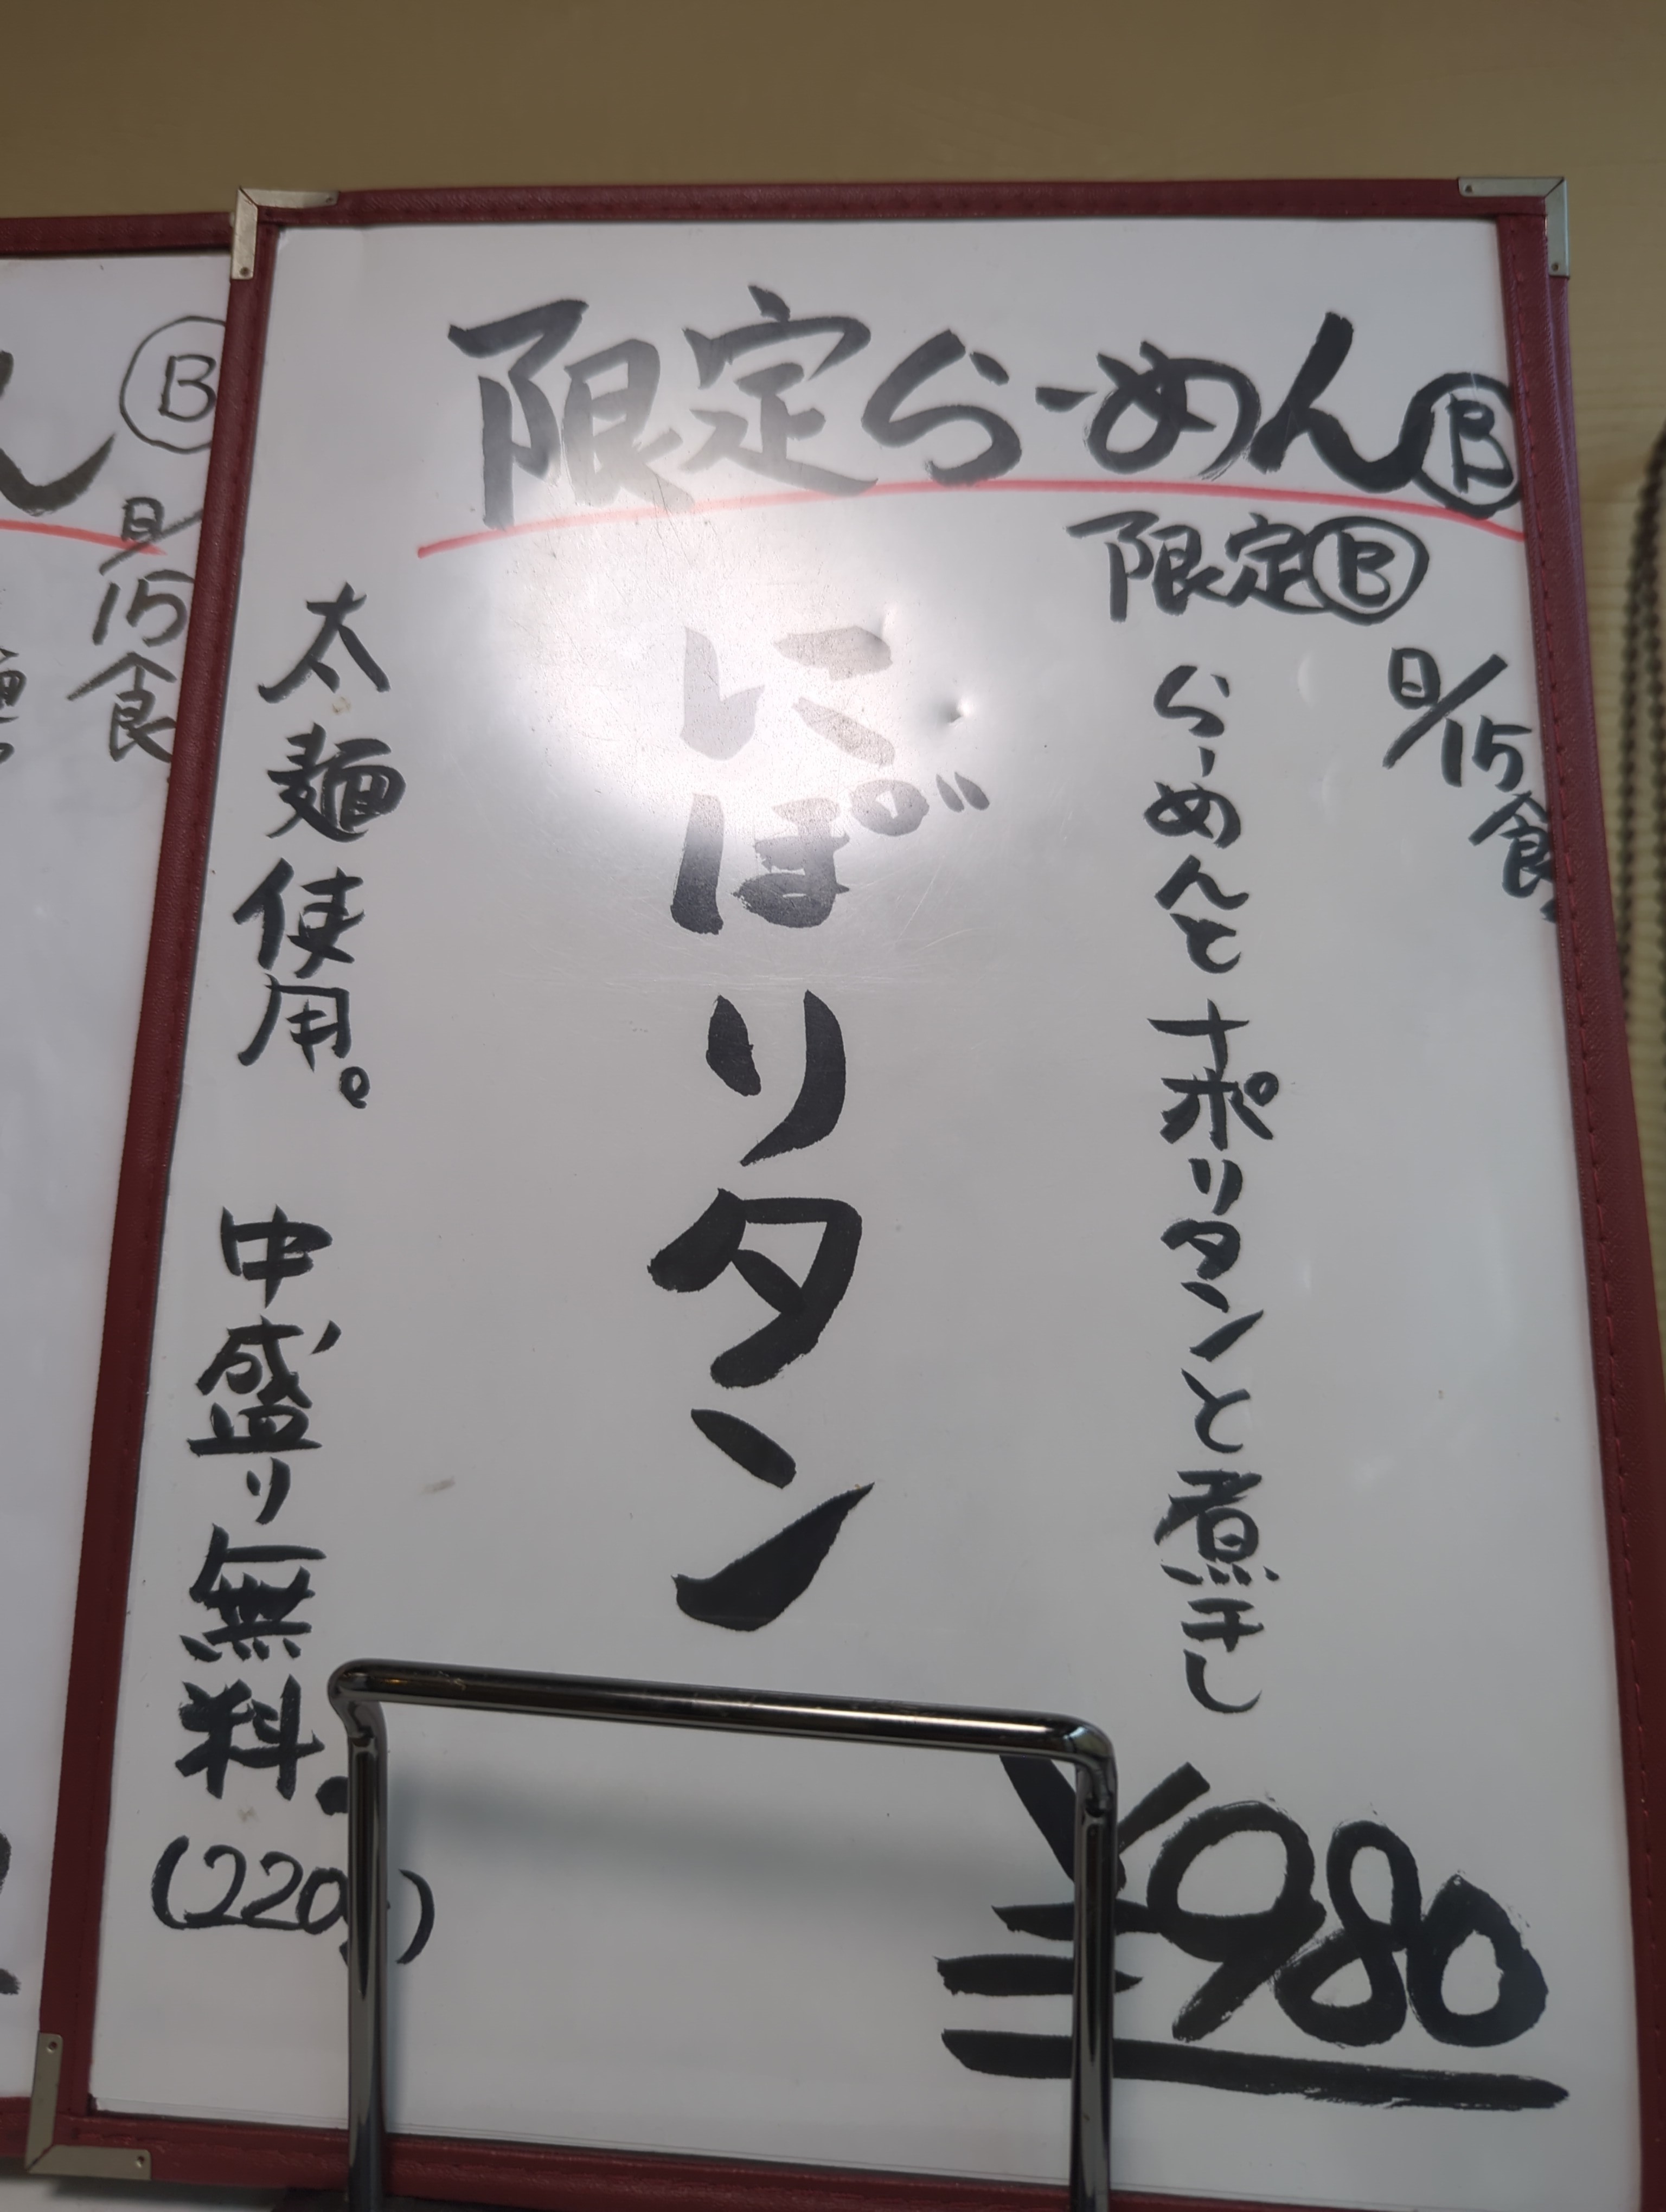 限定らーめんⒷ
限定Ⓑ
日/15食
らーめんとナポリタンと煮干し
にぽ゛リタン
太麺使用。
中盛り無料。
(220g)
¥980
Ⓑ
日/15食